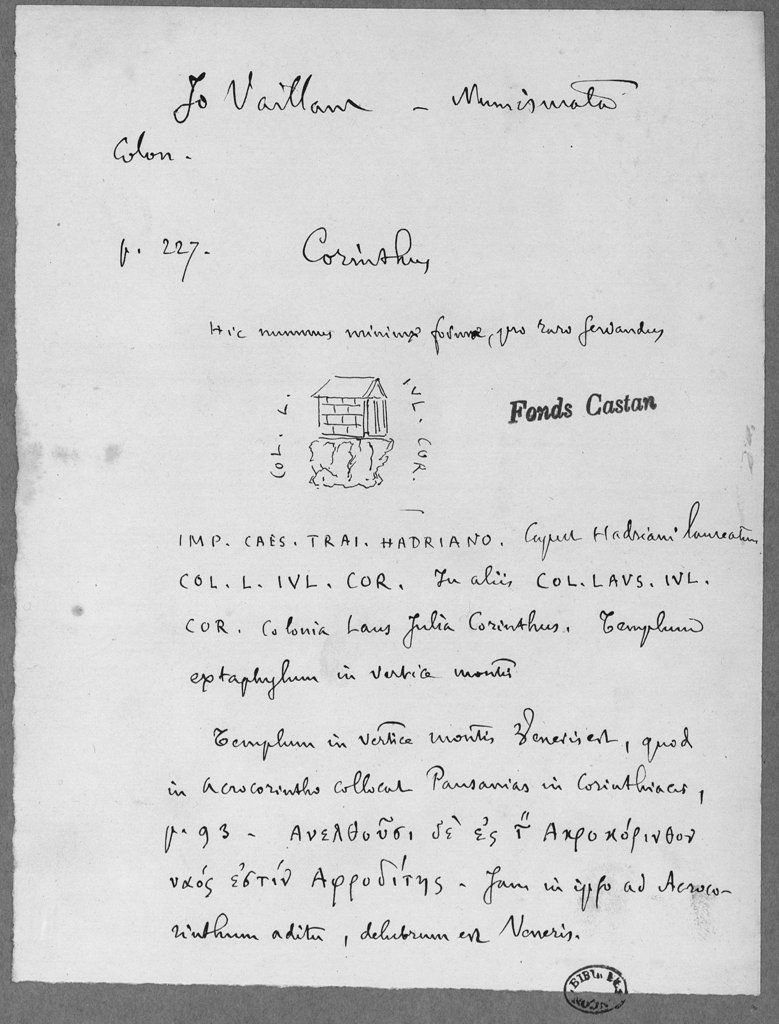 Jo Vaillant - Numismata
Colon.
p. 227. Corinthus
Hic nummus minimæ formæ, pro raro servandus
COL. L. IVL. COR.
Fonds Castan
IMP. CAES. TRAI. HADRIANO. Caput Hadriani laureatum
COL. L. IVL. COR. In aliis COL. LAVS. IVL.
COR. Colonia Laus Julia Corinthus. Templum
exstaphylum in vertice montis
Templum in vertice montis Veneris est, quod
in Acrocorintho collocat Pausanias in Corinthiacis,
p. 93 - Ανελθοῦσι δὲ ἐς τ Ακροκόρινθον
ναός ἐστίν Αφροδίτης - Jam in ipso ad Acroco-
rinthum aditu, delubrum est Veneris.